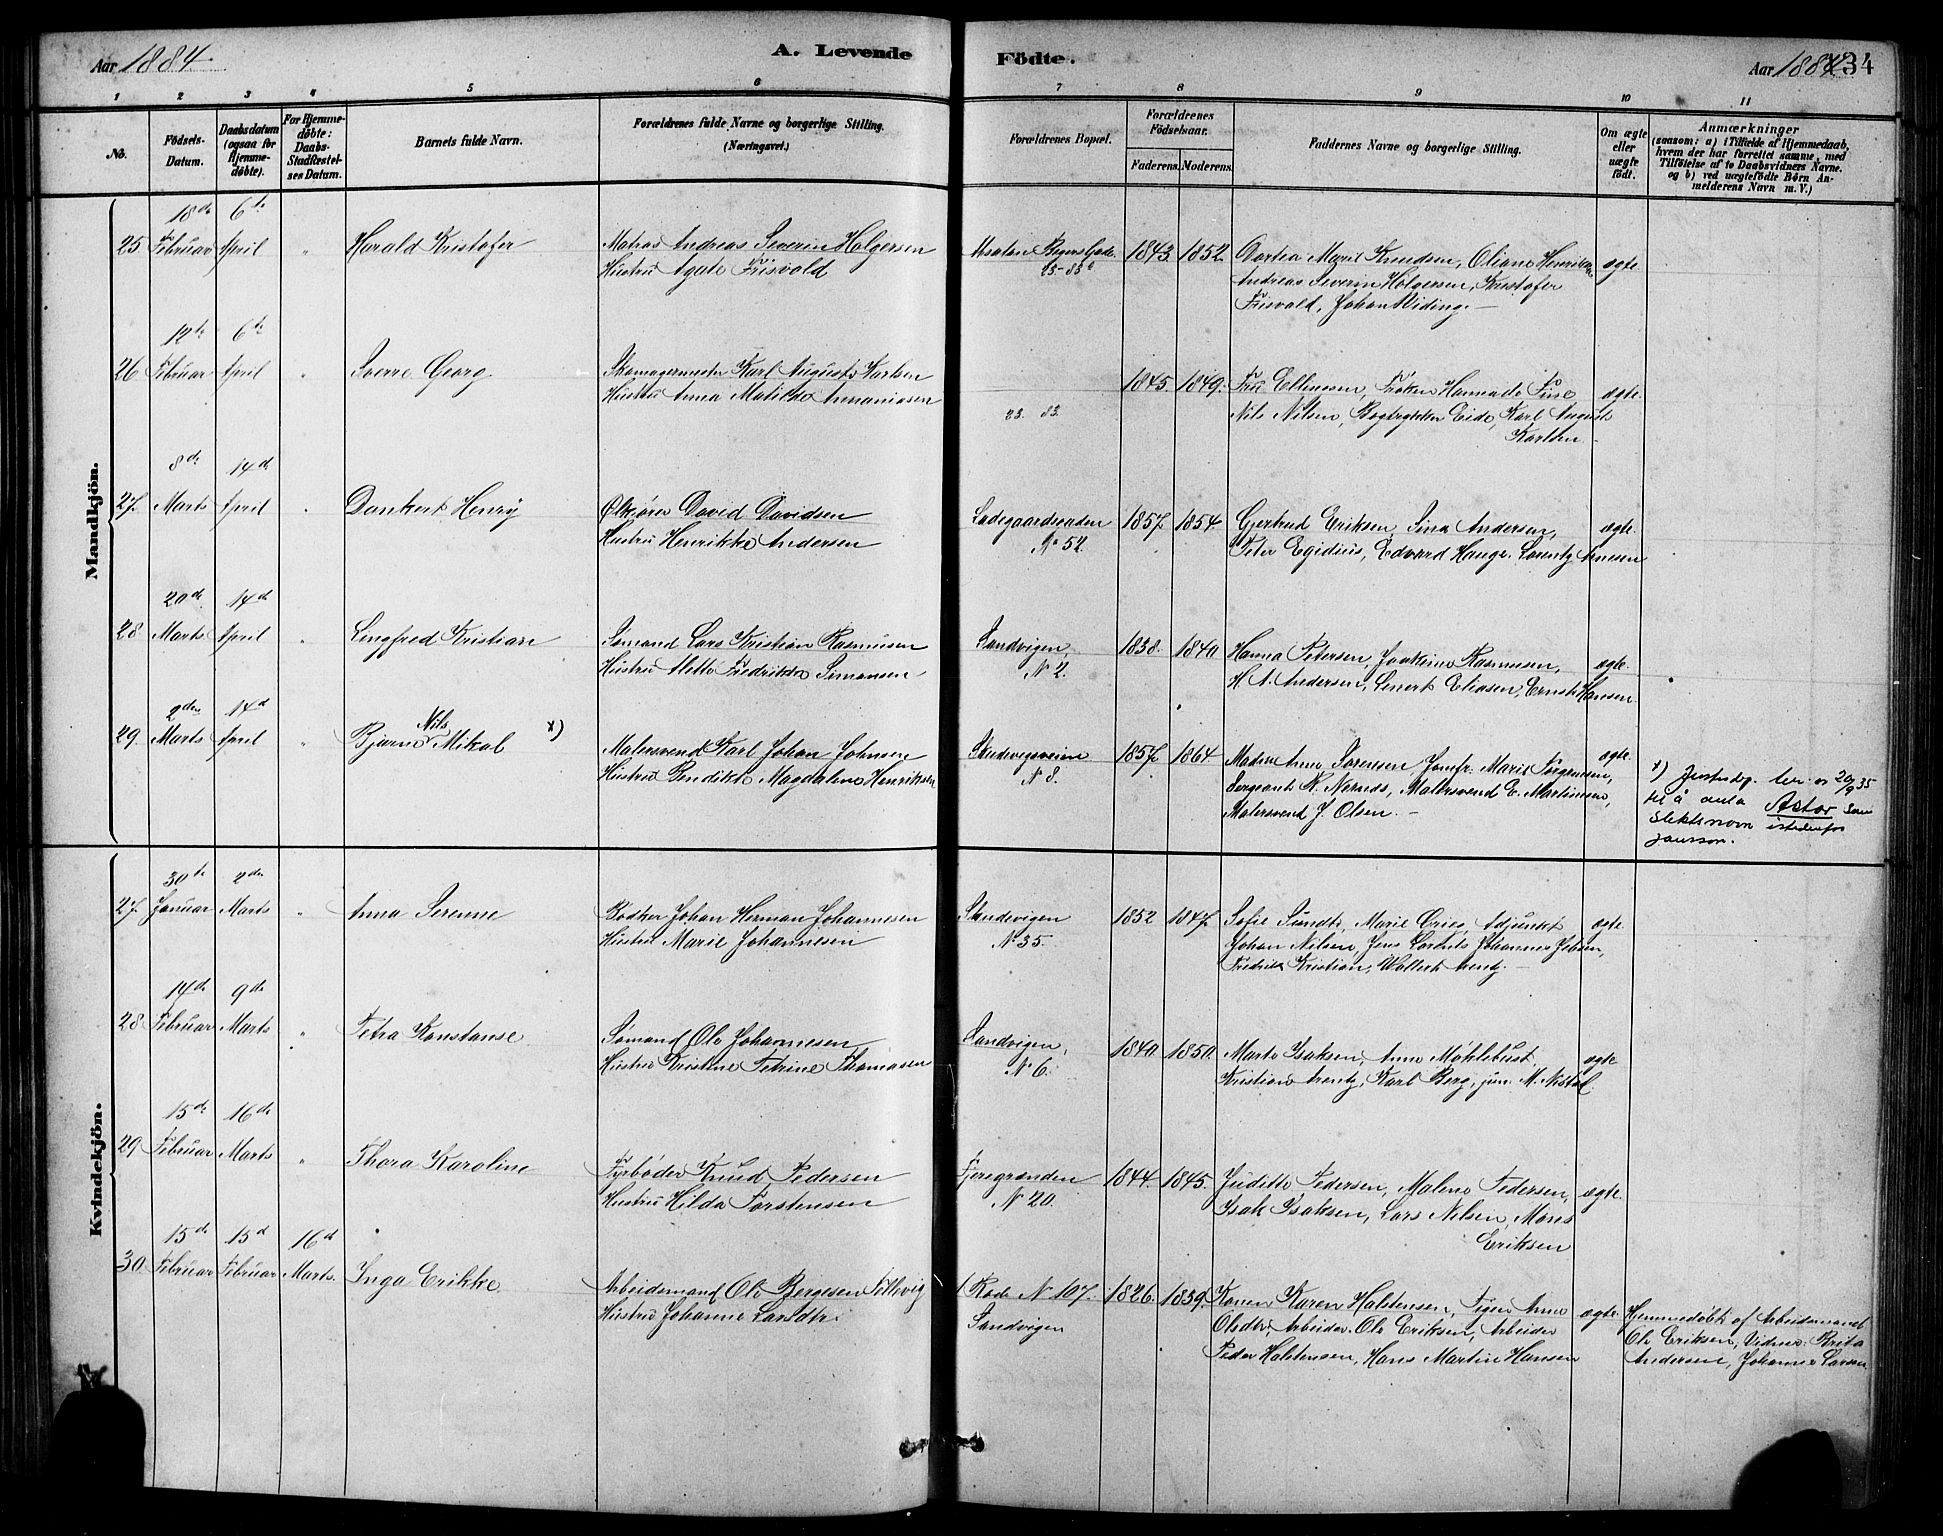 Aar 1884.
A. Levende Födte.
Aar 1884.
134
1 2 3 4 5 6 7 8 9 10 11
No.
Födsels-
Datum.
Daabsdatum
(ogsaa for
Hjemme-
döbte).
For Hjemme-
døbte:
Daabs-
Stadfæstel-
ses Datum.
Barnets fulde Navn.
Forældrenes fulde Navne og borgerlige Stilling.
(Næringsvei.)
Forældrenes Bopæl.
Forældrenes
Födselsaar.
Faderens. Moderens.
Faddernes Navne og borgerlige Stilling.
Om ægte
eller
uægte
födt.
Anmærkninger
(saasom: a) i Tilfælde af Hjemmedaab,
hvem der har forrettet samme, med
Tilföielse af to Daabsvidners Navne.
og b) ved uægtefödte Börn An-
melderens Navn m. V.)
Mandkjön.
18de 6te
25 Februar April " Harald Kristofer
Matros Andreas Severin Holgersen
Hustru Agate Frisvold
23-83
1843. 1852.
Dortea Marie Knudsen, Oliane Henriksen
Andreas Severin Holgersen, Kristofer
Frisvold, Johan Widing. –
ægte.
12te 6te
26 Februar April " Sverre Georg
Skomagermester Karl August Karlsen
Hustru Anna Matilda Annaniasen
23. 83.
1845. 1849.
Fru Ellingsen, Frøken Hanna de Fine
Nils Nilsen, Bogtrykker Eide, Karl August
Karlsen –
ægte.
8de 14d
27. Marts April " Dankert Henry
David Davidsen
Hustru Henrikke Andersen
Ladegaardsgaden
No 52.
1857. 1854
Gjertrud Eriksen, Sina Andersen,
Peter Egidius, Edvard Hauge. Lorentz Arnesen
ægte.
20de 14d
28 Marts April " Lingfred Kristian
Sømand Lars Kristian Rasmussen
Hustru Mette Fredrikke Simonsen
Sandvigen
No 2.
1838. 1840
Hanna Petersen, Joakime Rasmussen,
H. A. Andersen, Lenert Eliasen, Ernst Hansen
ægte.
2den 14d
29. Marts April " Bjarne Nils Mikal x)
Malersvend Karl Johan Johnsen
Hustru Bendikte Magdalene Henriksen
Skudevigsveien
No 8.
1857. 1864.
Madm Anna Sørensen, Jomfr. Marie Jørgensen,
Sergeant K. , Malersvend E. Martinsen,
Malersvend J. Olsen. –
ægte
x) Justisdp. bev. av 20/9 35
til å anta Astor som
slektsnavn istedenfor
Jansson.
Kvindekjön.
30te 2den
27. Januar Marts " Anna Serenne
Bødker Johan Herman Johannesen
Hustru Marie Johannesen
Skudevigen
No 35.
1852 1847.
Sofie Sundt, Marie Gries, Adjunkt
Johan Nilsen, Jens Lorents Johannes Jebsen,
Fredrik Kristian, Wollert Arentz. –
ægte
14de 9de
28 Februar Marts " Petra Konstanse
Sømand Ole Johannesen
Hustru Kristine Petrine Thomasen
Sandvigen,
No 6.
1840. 1850.
Marte Isaksen, Anne Møhlebust,
Kristian Arentz, Karl Berg, jun. M. Nistal.
ægte
15de 16de
29 Februar Marts " Thora Karoline
Fyrbøder Knud Pedersen
Hustru Hilda Torstensen
Fjeregrænden
No 20.
1844. 1845.
Juditte Pedersen, Malene Pedersen,
Isak Isaksen, Lars Nilsen, Mons
Eriksen
ægte.
15de 15d 16d
30. Februar Februar Marts. Inga Erikke
Arbeidsmand Ole Bergesen Tellevig
Hustru Johanne Larsdtr.
1 Rode No 107.
Sandvigen
1826. 1839.
Konen Karen Halstensen, Pigen Anne
Olsdtr, Arbeider. Ole Eriksen, Arbeider
Peder Halstensen, Hans Martin Hansen
ægte.
Hjemmedøbt af Arbeidsmand
Ole Eriksen, Vidner: Brita
Andersen, Johanne Larsen